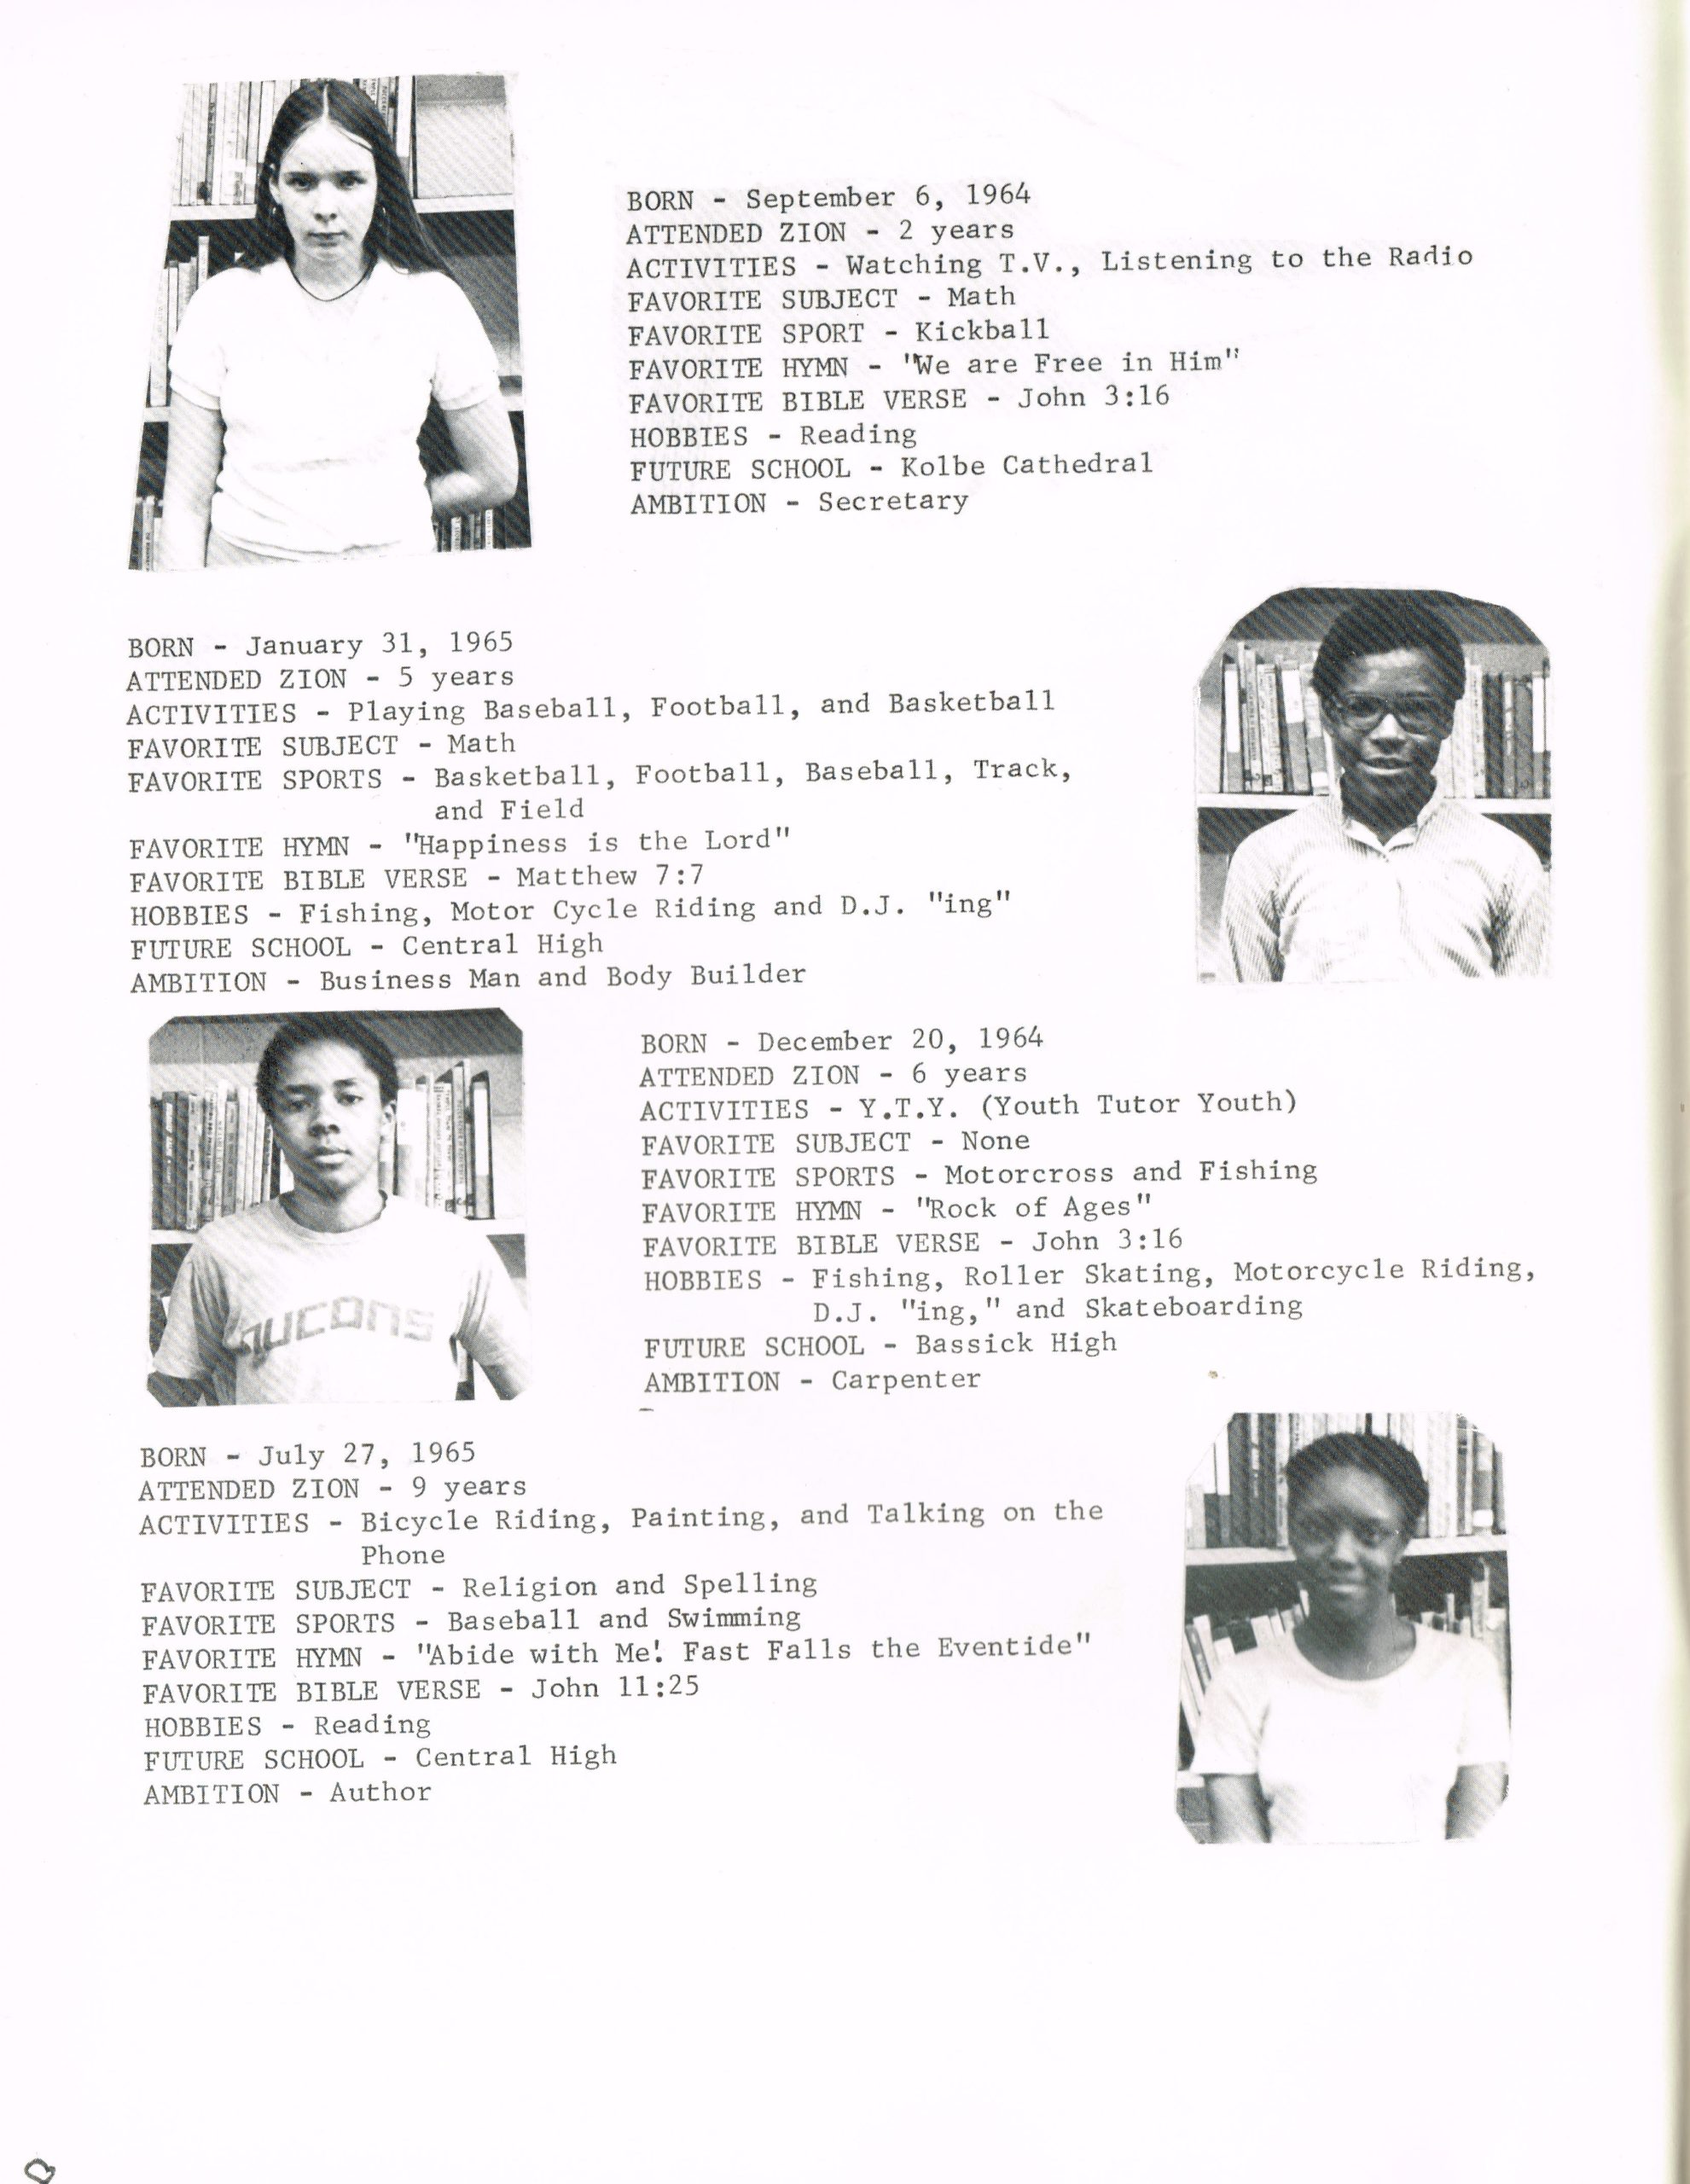 BORN - September 6, 1964
ATTENDED ZION - 2 years
ACTIVITIES - Watching T.V., Listening to the Radio
FAVORITE SUBJECT - Math
FAVORITE SPORT - Kickball
FAVORITE HYMN - "We are Free in Him"
FAVORITE BIBLE VERSE - John 3:16
HOBBIES - Reading
FUTURE SCHOOL - Kolbe Cathedral
AMBITION - Secretary
BORN - January 31, 1965
ATTENDED ZION - 5 years
ACTIVITIES - Playing Baseball, Football, and Basketball
FAVORITE SUBJECT - Math
FAVORITE SPORTS - Basketball, Football, Baseball, Track,
and Field
FAVORITE HYMN - "Happiness is the Lord"
FAVORITE BIBLE VERSE - Matthew 7:7
HOBBIES - Fishing, Motor Cycle Riding and D.J. "ing"
FUTURE SCHOOL - Central High
AMBITION - Business Man and Body Builder
BORN - December 20, 1964
ATTENDED ZION - 6 years
ACTIVITIES - Y.T.Y. (Youth Tutor Youth)
FAVORITE SUBJECT - None
FAVORITE SPORTS - Motorcross and Fishing
FAVORITE HYMN - "Rock of Ages"
FAVORITE BIBLE VERSE - John 3:16
HOBBIES - Fishing, Roller Skating, Motorcycle Riding,
D.J. "ing," and Skateboarding
FUTURE SCHOOL - Bassick High
AMBITION - Carpenter
BORN - July 27, 1965
ATTENDED ZION - 9 years
ACTIVITIES - Bicycle Riding, Painting, and Talking on the
Phone
FAVORITE SUBJECT - Religion and Spelling
FAVORITE SPORTS - Baseball and Swimming
FAVORITE HYMN - "Abide with Me! Fast Falls the Eventide"
FAVORITE BIBLE VERSE - John 11:25
HOBBIES - Reading
FUTURE SCHOOL - Central High
AMBITION - Author